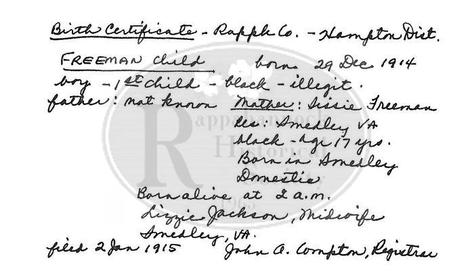 Birth Certificate - Rapph Co. - Hampton Dist.
FREEMAN child born 29 Dec 1914
boy - 1st child - black - illegit.
father: not known Mother: Sissie Freeman
Res: Smedley VA
black - Age 17 yrs.
Born in Smedley
Domestic
Born alive at 2 a.m.
Lizzie Jackson, Midwife
Smedley, VA.
filed 2 Jan 1915 John A. Compton, Registrar